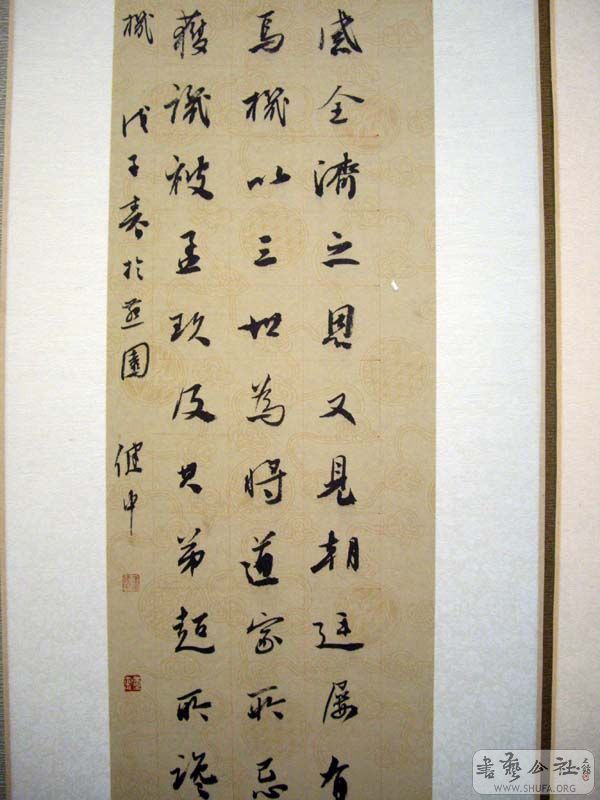 感全濟之恩又見朝廷屢有
焉機以三世為將道家所忌
獲譏被孟玖及其弟超所譖
機 戊子春於燕園 健中
書藝公社
WWW.SHUFA.ORG